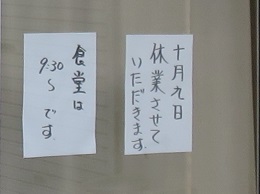 十月九日
休業させて
いただきます
食堂は
9:30
〜 です